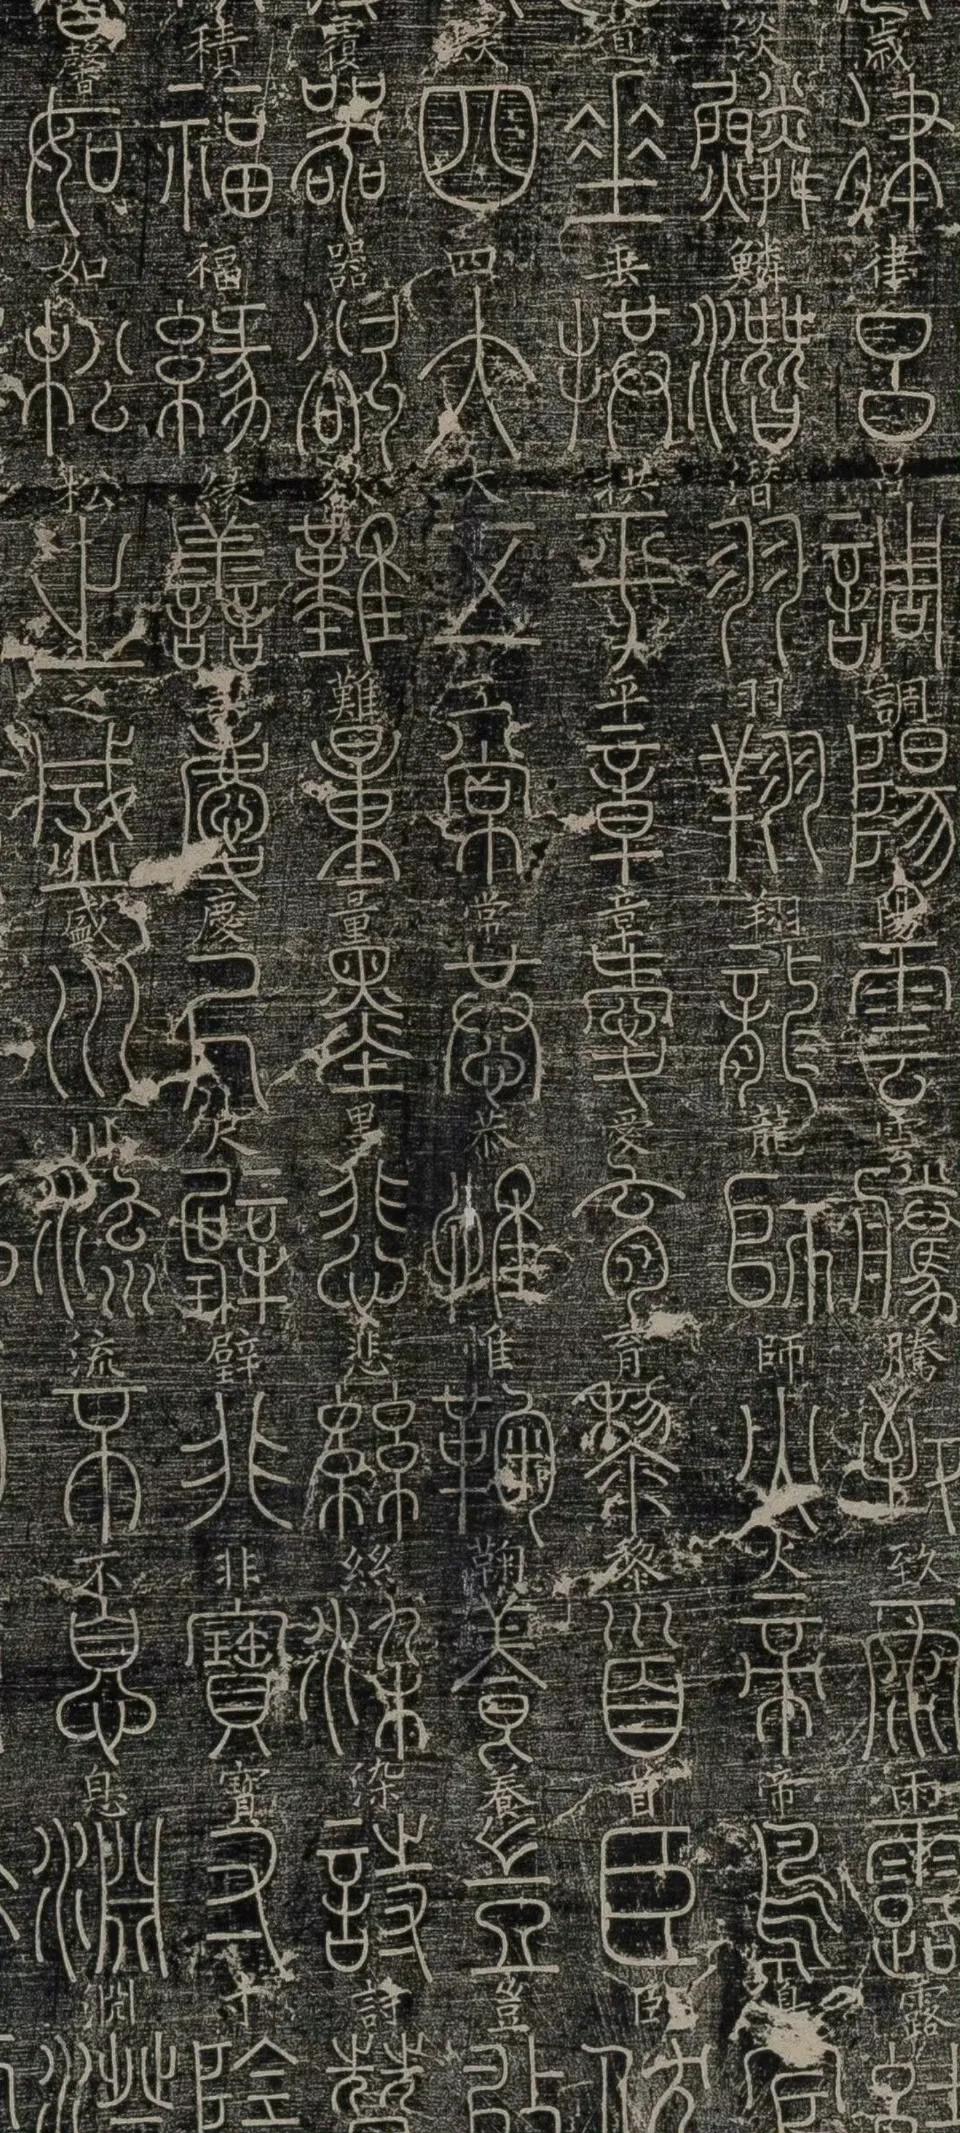 歲律呂調陽雲騰致雨露
淡鱗潛羽翔龍師火帝鳥
道垂拱平章愛育黎首臣伏
四大五常恭惟鞠養豈敢
覆器欲難量墨悲絲染詩讚
積福緣善慶尺璧非寶寸陰
馨如松之盛川流不息淵澄